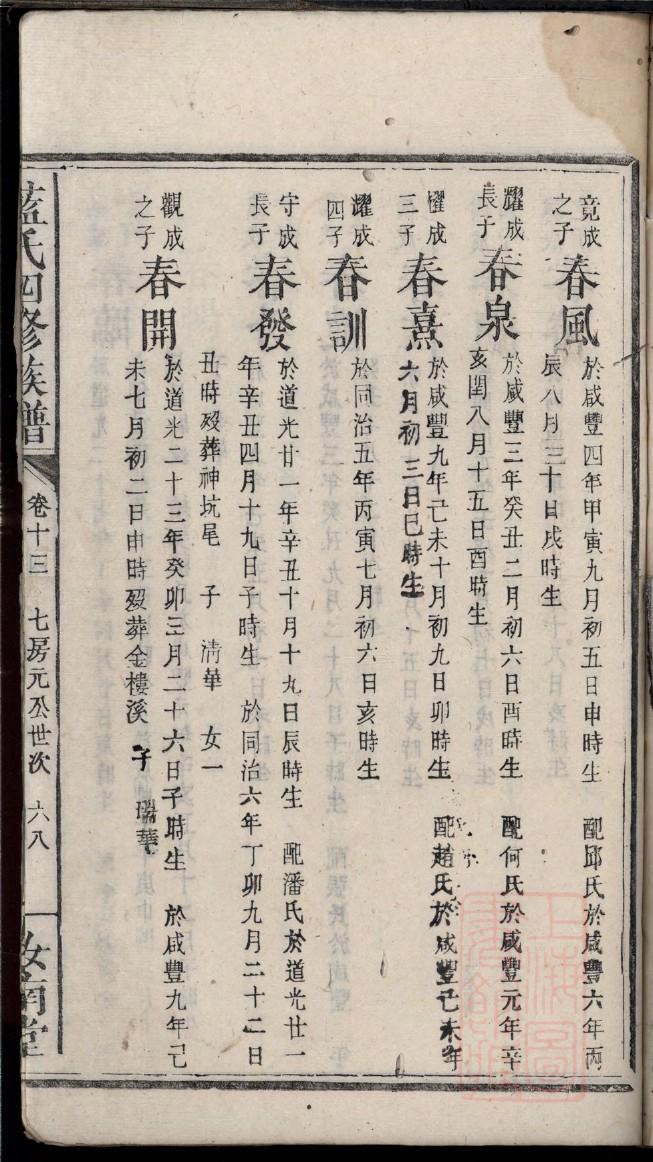 竟成
之子
春風
於咸豐四年甲寅九月初五日申時生 配邱氏於咸豐六年丙
辰八月三十日戌時生
耀成
長子
春泉
於咸豐三年癸丑二月初六日酉時生 配何氏於咸豐元年辛
亥閏八月十五日酉時生
耀成
三子
春熹
於咸豐九年己未十月初九日卯時生 配趙氏於咸豐己未年
六月初三日巳時生
耀成
四子
春訓
於同治五年丙寅七月初六日亥時生
守成
長子
春發
於道光廿一年辛丑十月十九日辰時生 配潘氏於道光廿一
年辛丑四月十九日子時生 於同治六年丁卯九月二十二日
丑時歿葬神坑尾 子 清華 女一
觀成
之子
春開
於道光二十三年癸卯三月二十六日子時生 於咸豐九年己
未七月初二日申時歿葬金樓溪 子 瑞華
藍氏四修族譜
卷十三 七房元公世次 六八
汝南堂